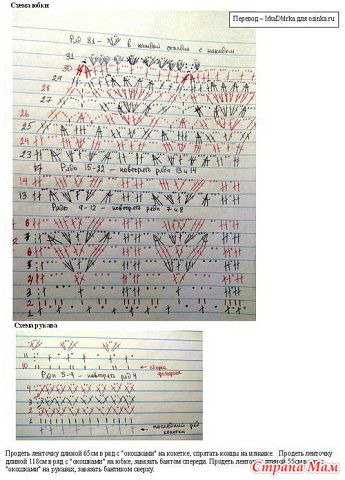 Схема юбки
Перевод – IrkaDbirka для osinka.ru
Ряд 31 – в каждый столбик с накидом
31
30
29
28
27
26
25
24
23
Ряды 15-22 – повторять ряды 13 и 14
14
13
Ряды 9-12 – повторять ряды 7 и 8
8
7
6
5
4
3
2
1
Схема рукава
11
10
Ряды 5-9 – повторять ряд 4
4
3
2
1
последний ряд
кокетки
Продеть ленточку длиной 65см в ряд с "окошками" на кокетке, спрятать концы на изнанке. Продеть ленточку
длиной 118см в ряд с "окошками" на юбке, завязать бантом спереди. Продеть ленточку длиной 55см в ряд с
"окошками" на рукавах, завязать бантиком сверху.
Страна Мам